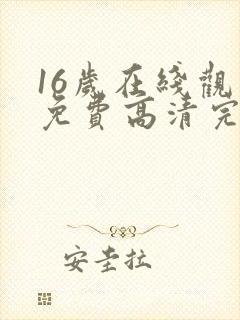 16歲在綫觀
免費高清完
安圭拉